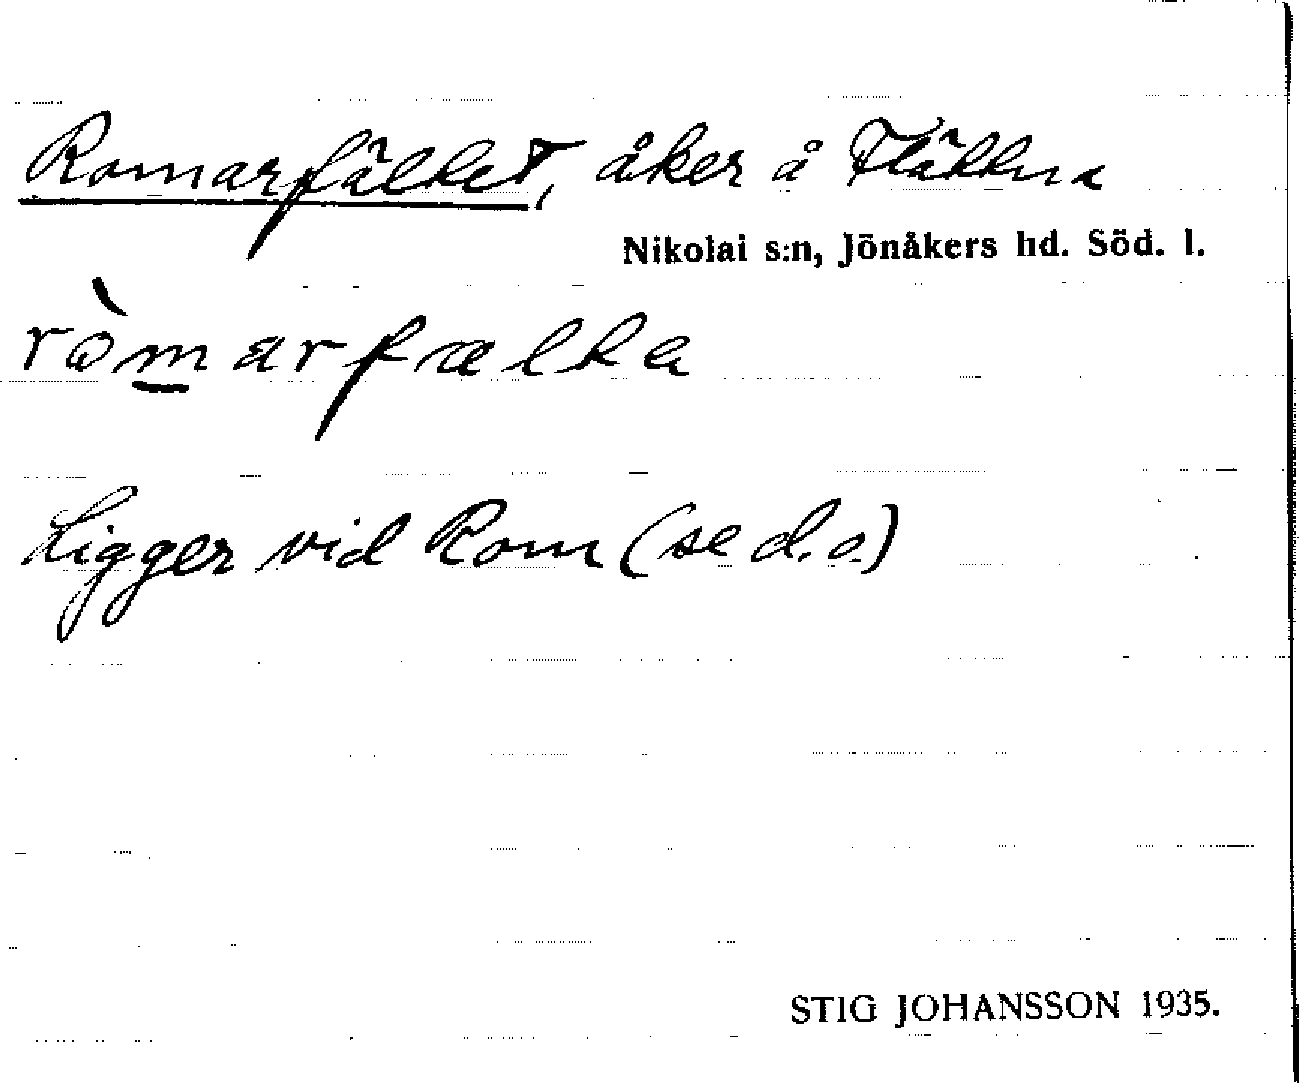 Romarfältet, åker å Fläkkna
Nikolai s:n, Jönåkers hd. Söd. l.
ròmarfælta
Ligger vid Rom (se d.o.)
STIG JOHANSSON 1935.